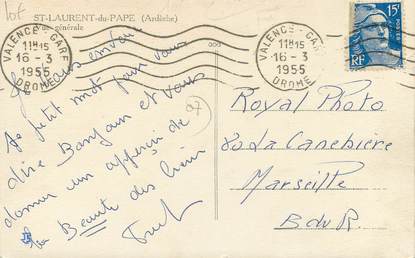 lot
ST-LAURENT-du-PAPE (Ardèche)
Vue générale
VALENCE - GARE
11H15
16 - 3
1955
DROME
VALENCE - GARE
11H15
16 - 3
1955
DROME
15F
POSTES
RF
Je vous envoie
ce petit mot pour vous
dire Bonjour et vous
donner un apperçu de
la Beauté des lieux
97
Royal Photo
80 La Canebière
Marseille
B du R.